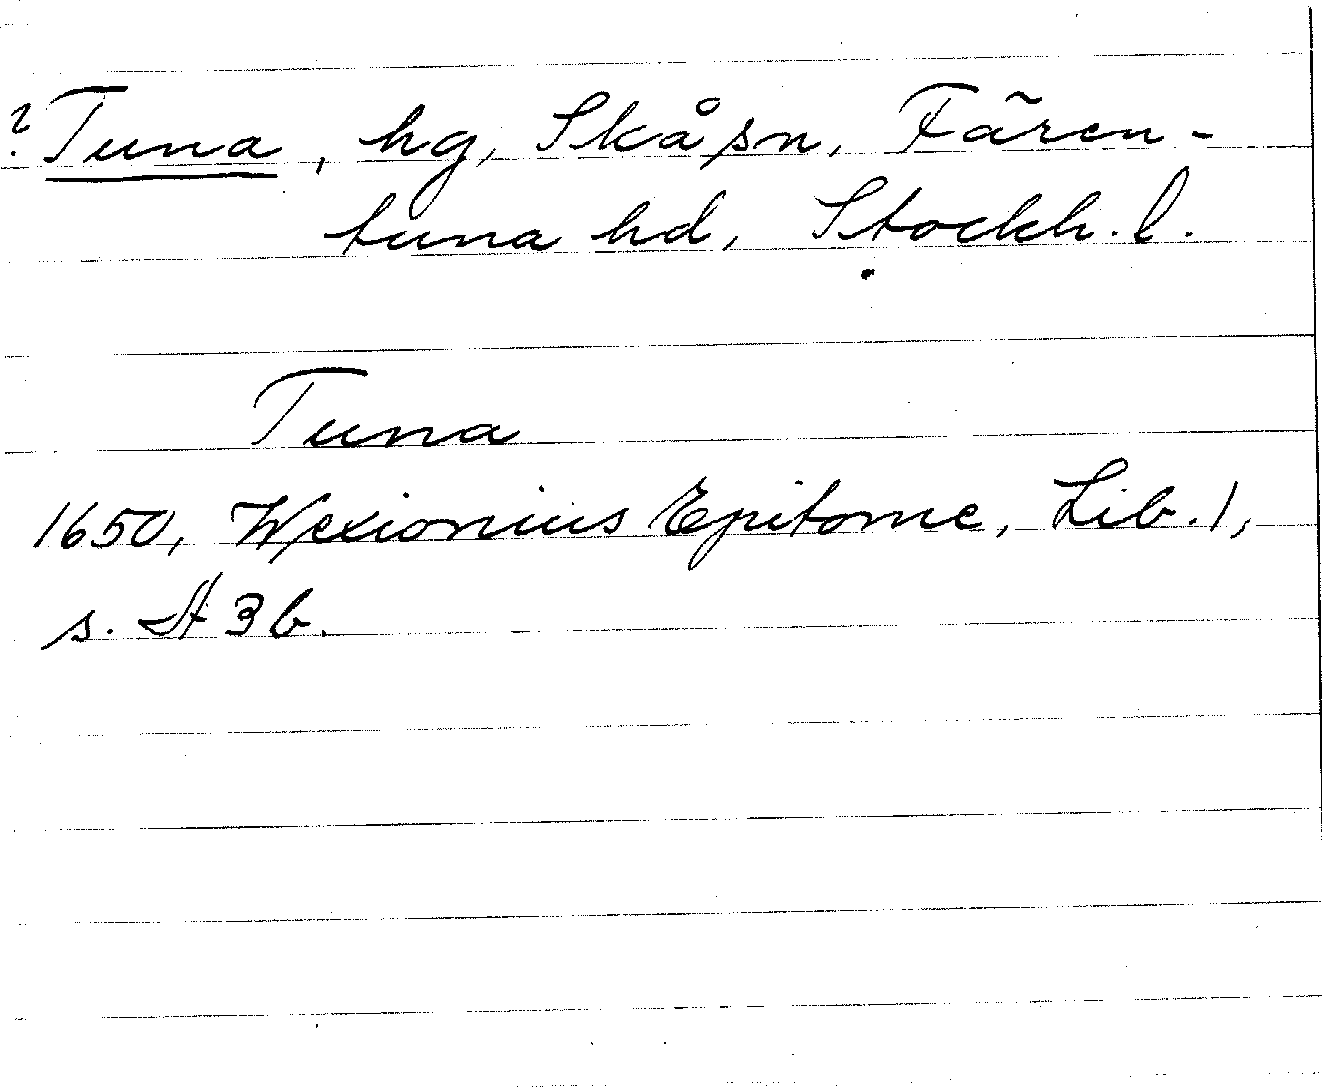 ? Tuna, hg, Skå sn, Fären-
tuna hd, Stockh. l.
Tuna
1650, Wexionius Epitome, Lib. 1,
s. A 3 b.